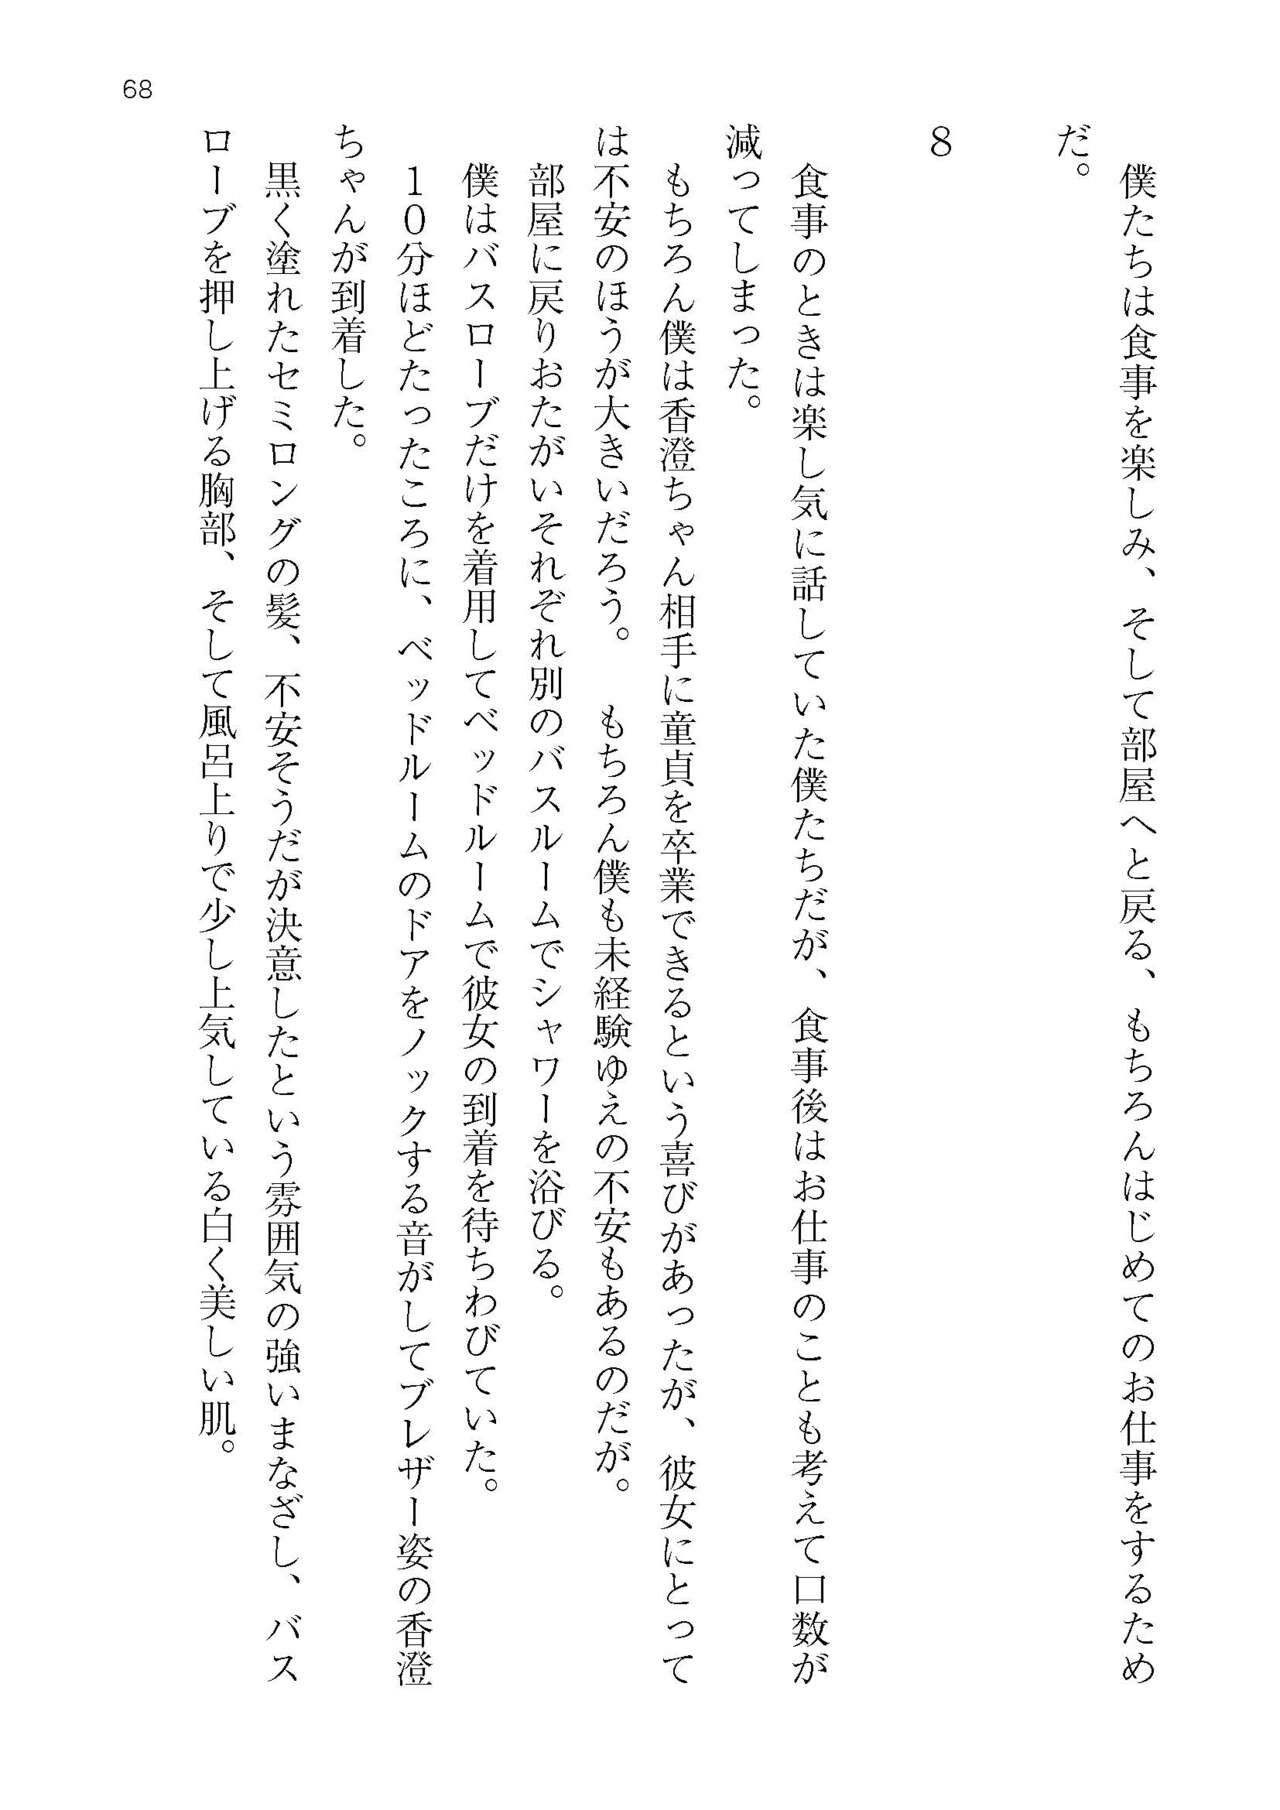 68
僕たちは食事を楽しみ、そして部屋へと戻る、もちろんはじめてのお仕事をするため
だ。
8
食事のときは楽し気に話していた僕たちだが、食事後はお仕事のことも考えて口数が
減ってしまった。
もちろん僕は香澄ちゃん相手に童貞を卒業できるという喜びがあったが、彼女にとって
は不安のほうが大きいだろう。　もちろん僕も未経験ゆえの不安もあるのだが。
部屋に戻りおたがいそれぞれ別のバスルームでシャワーを浴びる。
僕はバスローブだけを着用してベッドルームで彼女の到着を待ちわびていた。
１０分ほどたったころに、ベッドルームのドアをノックする音がしてブレザー姿の香澄
ちゃんが到着した。
黒く塗れたセミロングの髪、不安そうだが決意したという雰囲気の強いまなざし、バス
ローブを押し上げる胸部、そして風呂上りで少し上気している白く美しい肌。